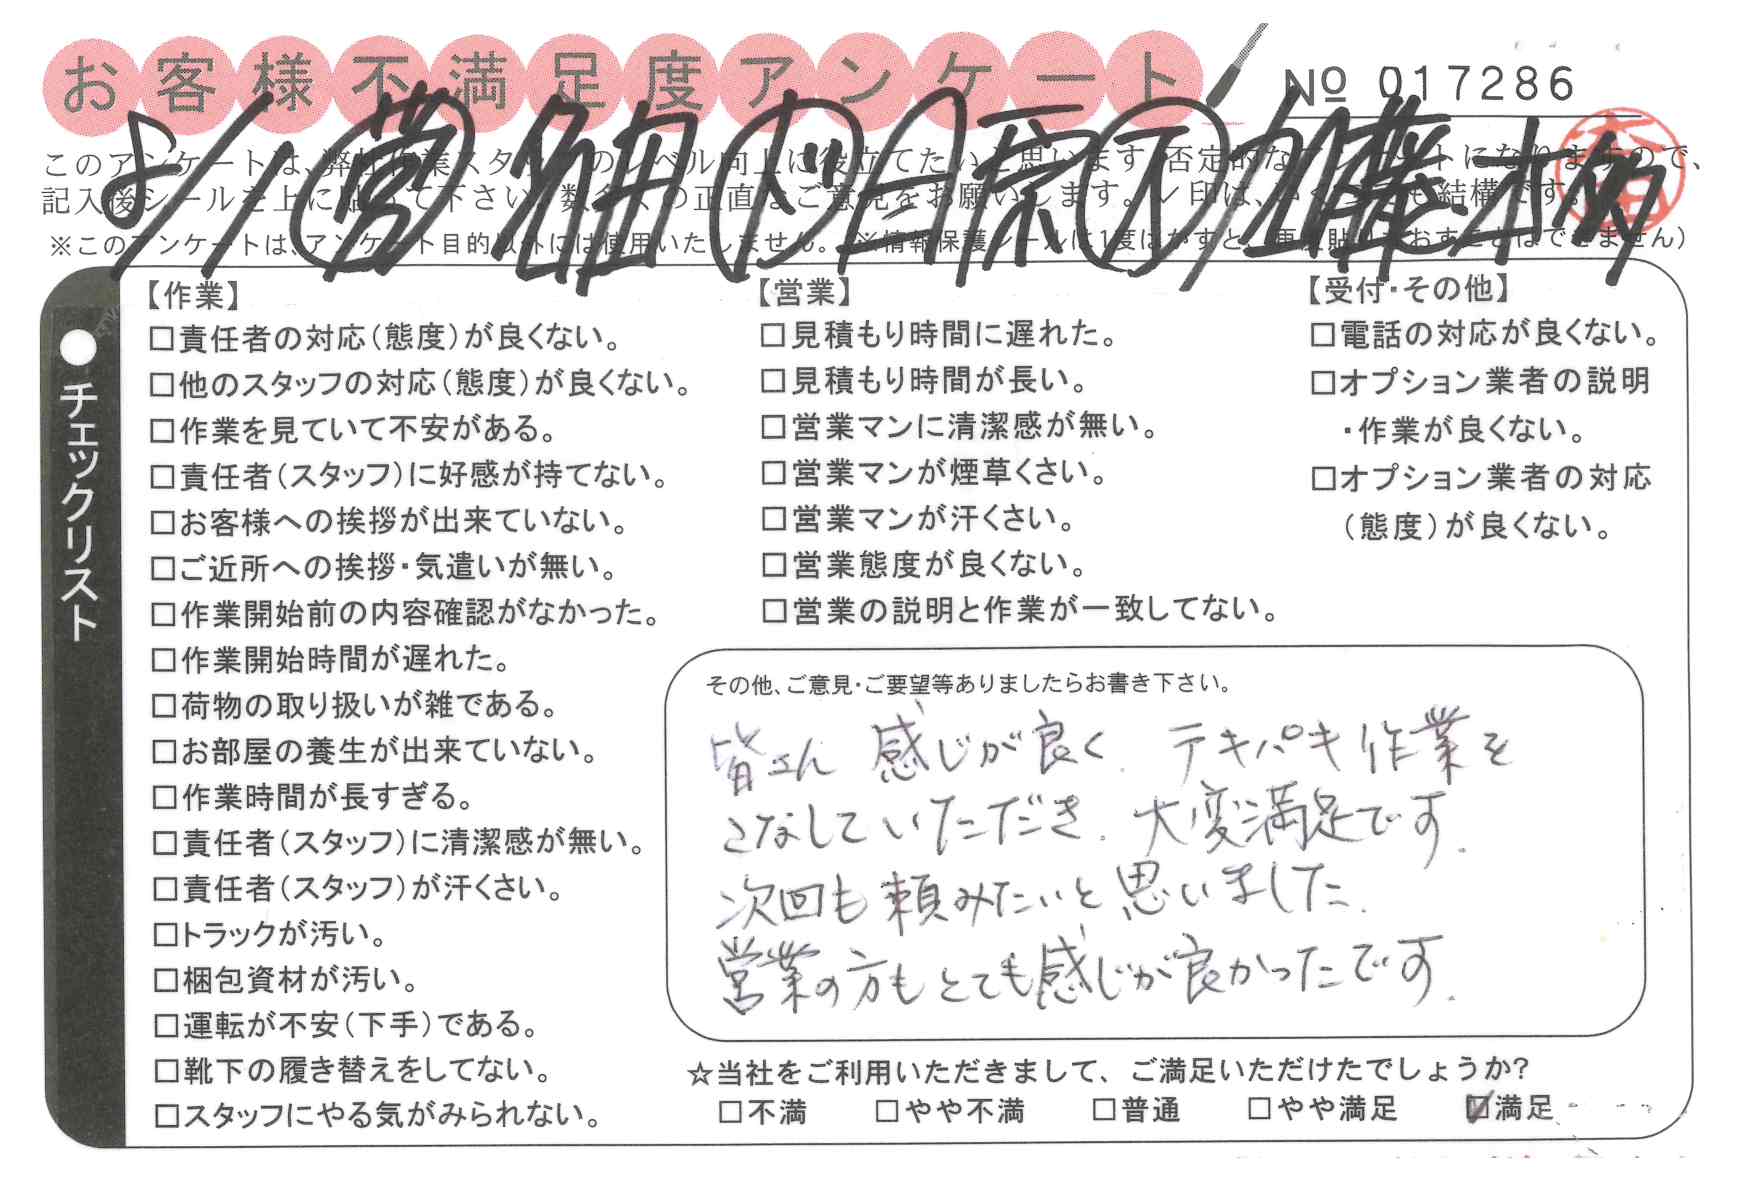 お客様不満足度アンケート
№ 017286
このアンケートは、弊社作業スタッフのレベル向上に役立てたいと思います。否定的なアンケートになりますので、
記入後シールを上に貼って下さい。数多くの正直なご意見をお願いします。✓印は、いくつでも結構です。
※このアンケートは、アンケート目的以外には使用いたしません。(※情報保護シールは1度はがすと、再度貼りなおすことはできません)
チェックリスト
【作業】
□責任者の対応(態度)が良くない。
□他のスタッフの対応(態度)が良くない。
□作業を見ていて不安がある。
□責任者(スタッフ)に好感が持てない。
□お客様への挨拶が出来ていない。
□ご近所への挨拶・気遣いが無い。
□作業開始前の内容確認がなかった。
□作業開始時間が遅れた。
□荷物の取り扱いが雑である。
□お部屋の養生が出来ていない。
□作業時間が長すぎる。
□責任者(スタッフ)に清潔感が無い。
□責任者(スタッフ)が汗くさい。
□トラックが汚い。
□梱包資材が汚い。
□運転が不安(下手)である。
□靴下の履き替えをしてない。
□スタッフにやる気がみられない。
【営業】
□見積もり時間に遅れた。
□見積もり時間が長い。
□営業マンに清潔感が無い。
□営業マンが煙草くさい。
□営業マンが汗くさい。
□営業態度が良くない。
□営業の説明と作業が一致してない。
【受付・その他】
□電話の対応が良くない。
□オプション業者の説明
・作業が良くない。
□オプション業者の対応
(態度)が良くない。
その他、ご意見・ご要望等ありましたらお書き下さい。
皆さん 感じが良く、テキパキ作業を
こなしていただき、大変満足です。
次回も頼みたいと思いました。
営業の方もとても感じが良かったです。
☆当社をご利用いただきまして、ご満足いただけたでしょうか?
□不満 □やや不満 □普通 □やや満足 ☑満足